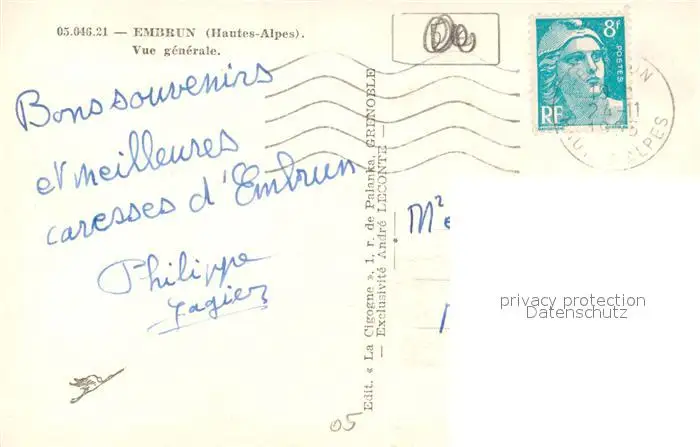 05.046.21 — EMBRUN (Hautes-Alpes).
Vue générale.
Bons souvenirs
et meilleures
caresses d'Embrun
Philippe
Edit. « La Cigogne », 1, r. de Palanka, GRENOBLE
— Exclusivité André LECONTE —
05
8f
POSTES
RF
24-11
ALPES
M²
privacy protection
Datenschutz